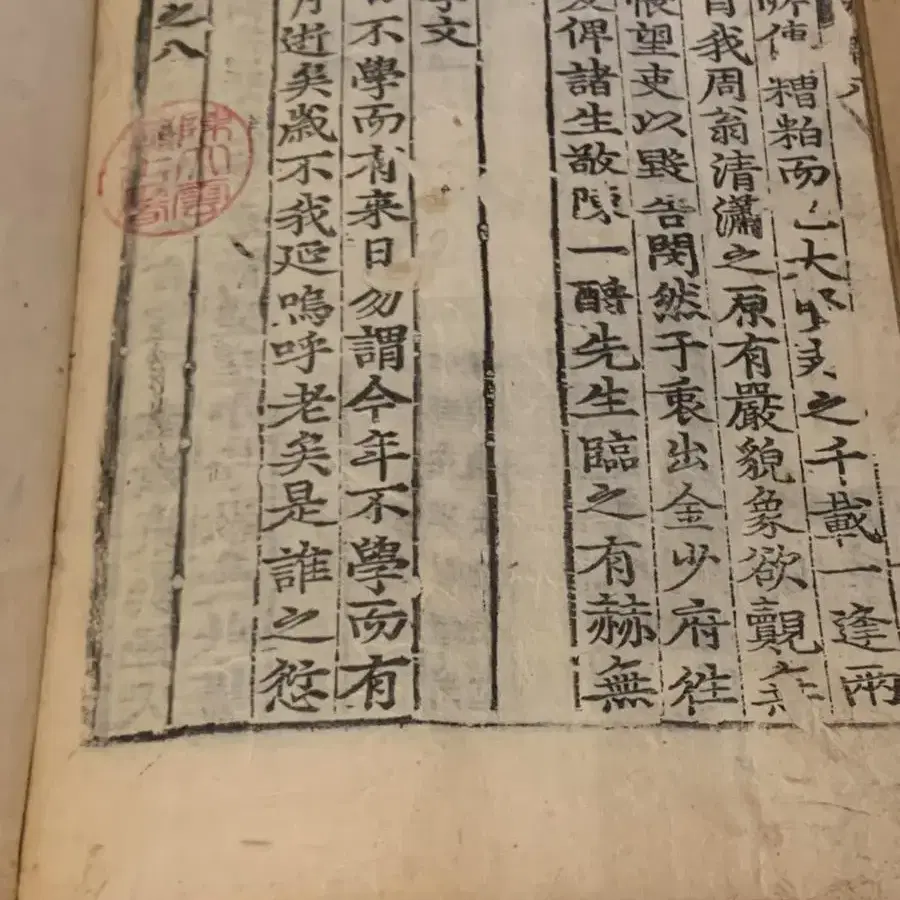 糟粕而已大之千載一逢兩
自我周翁清瀟之原有嚴貌象欲覿
悵望吏以毀告閔然于衷出金少府徃
俾諸生敬陳一酹先生臨之有赫無
文
不學而有来日勿謂今年不學而有
月逝矣歲不我延嗚呼老矣是誰之愆
之八